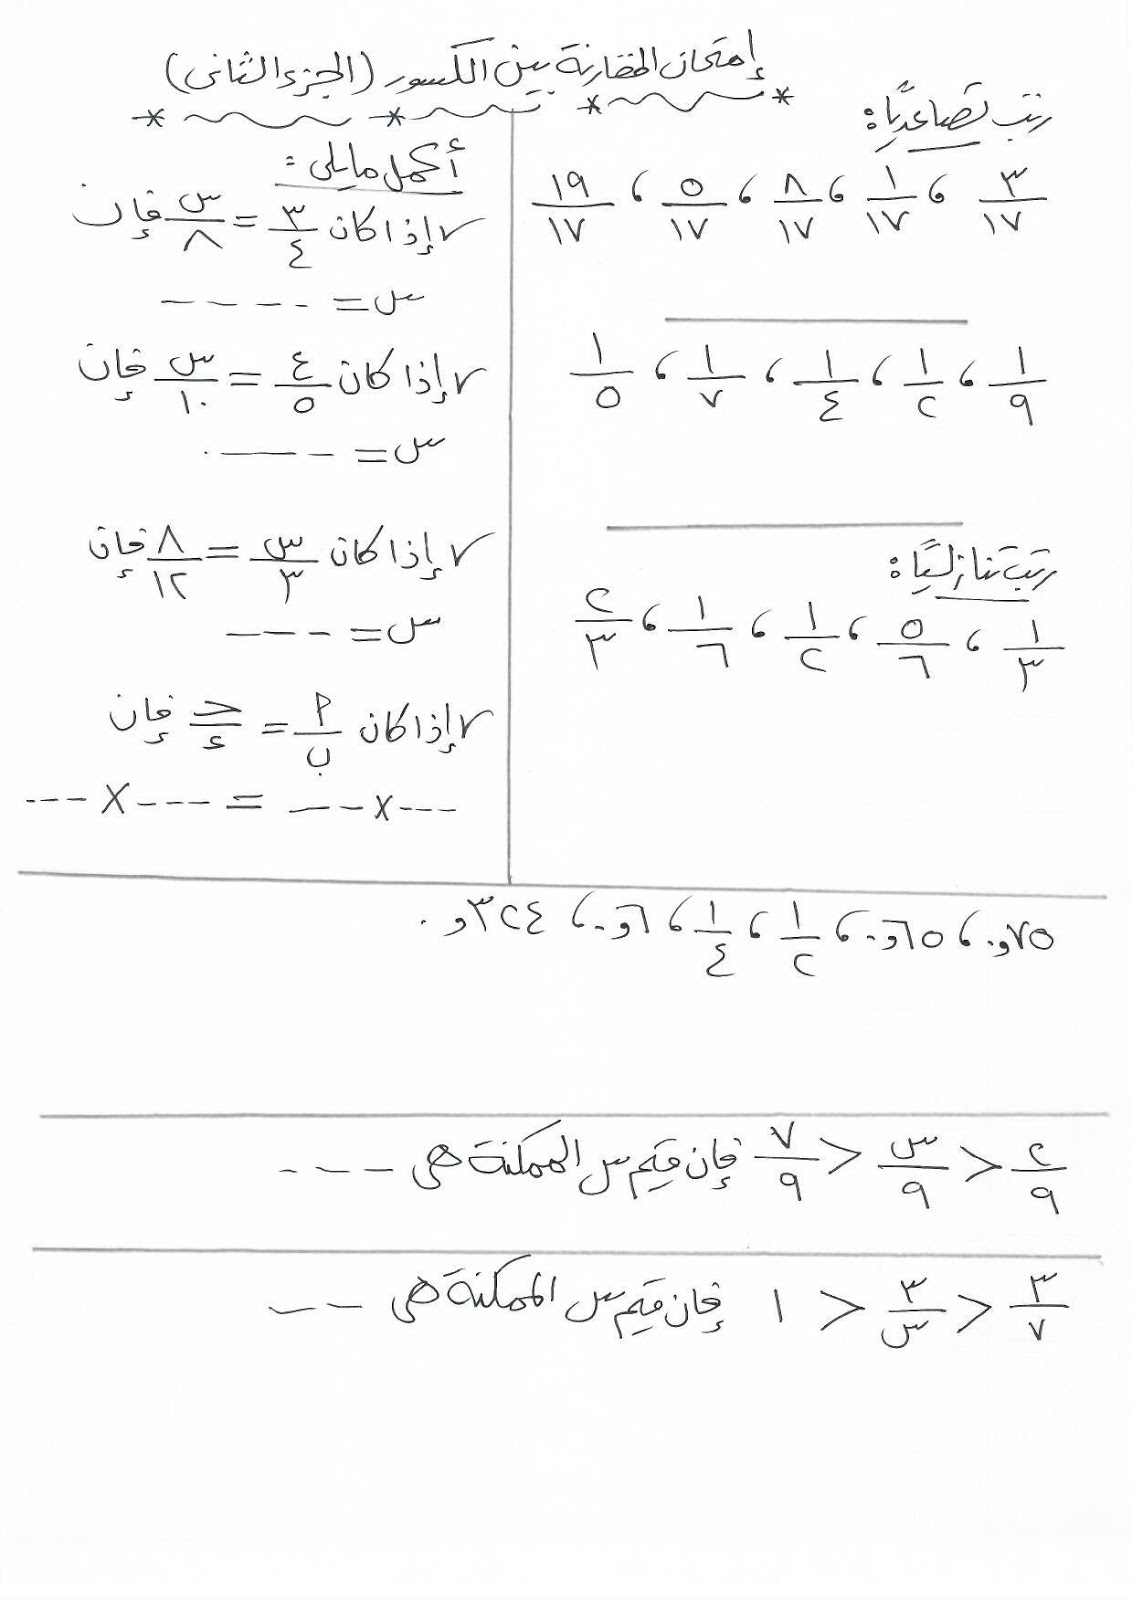 إمتحان المقارنة بين الكسور (الجزء الثانى)
رتب تصاعديًا:
٣/١٧ ، ١/١٧ ، ٨/١٧ ، ٥/١٧ ، ١٩/١٧
١/٩ ، ١/٢ ، ١/٤ ، ١/٧ ، ١/٥
رتب تنازليًا:
١/٣ ، ٥/٦ ، ١/٢ ، ١/٦ ، ٢/٣
أكمل مايلى:
إذا كان ٣/٤ = س/٨ فإن
س = ----
إذا كان ٤/٥ = س/١٠ فإن
س = ----
إذا كان س/٣ = ٨/١٢ فإن
س = ----
إذا كان أ/ب = ح/ء فإن
--- × --- = --- × ---
٧٥و٠ ، ٦٥و٠ ، ١/٢ ، ١/٤ ، ٦و٠ ، ٣٢٤و٠
٢/٩ < س/٩ < ٧/٩ فإن قيم س الممكنة هى ----
٣/٧ < ٣/س < ١ فإن قيم س الممكنة هى ---